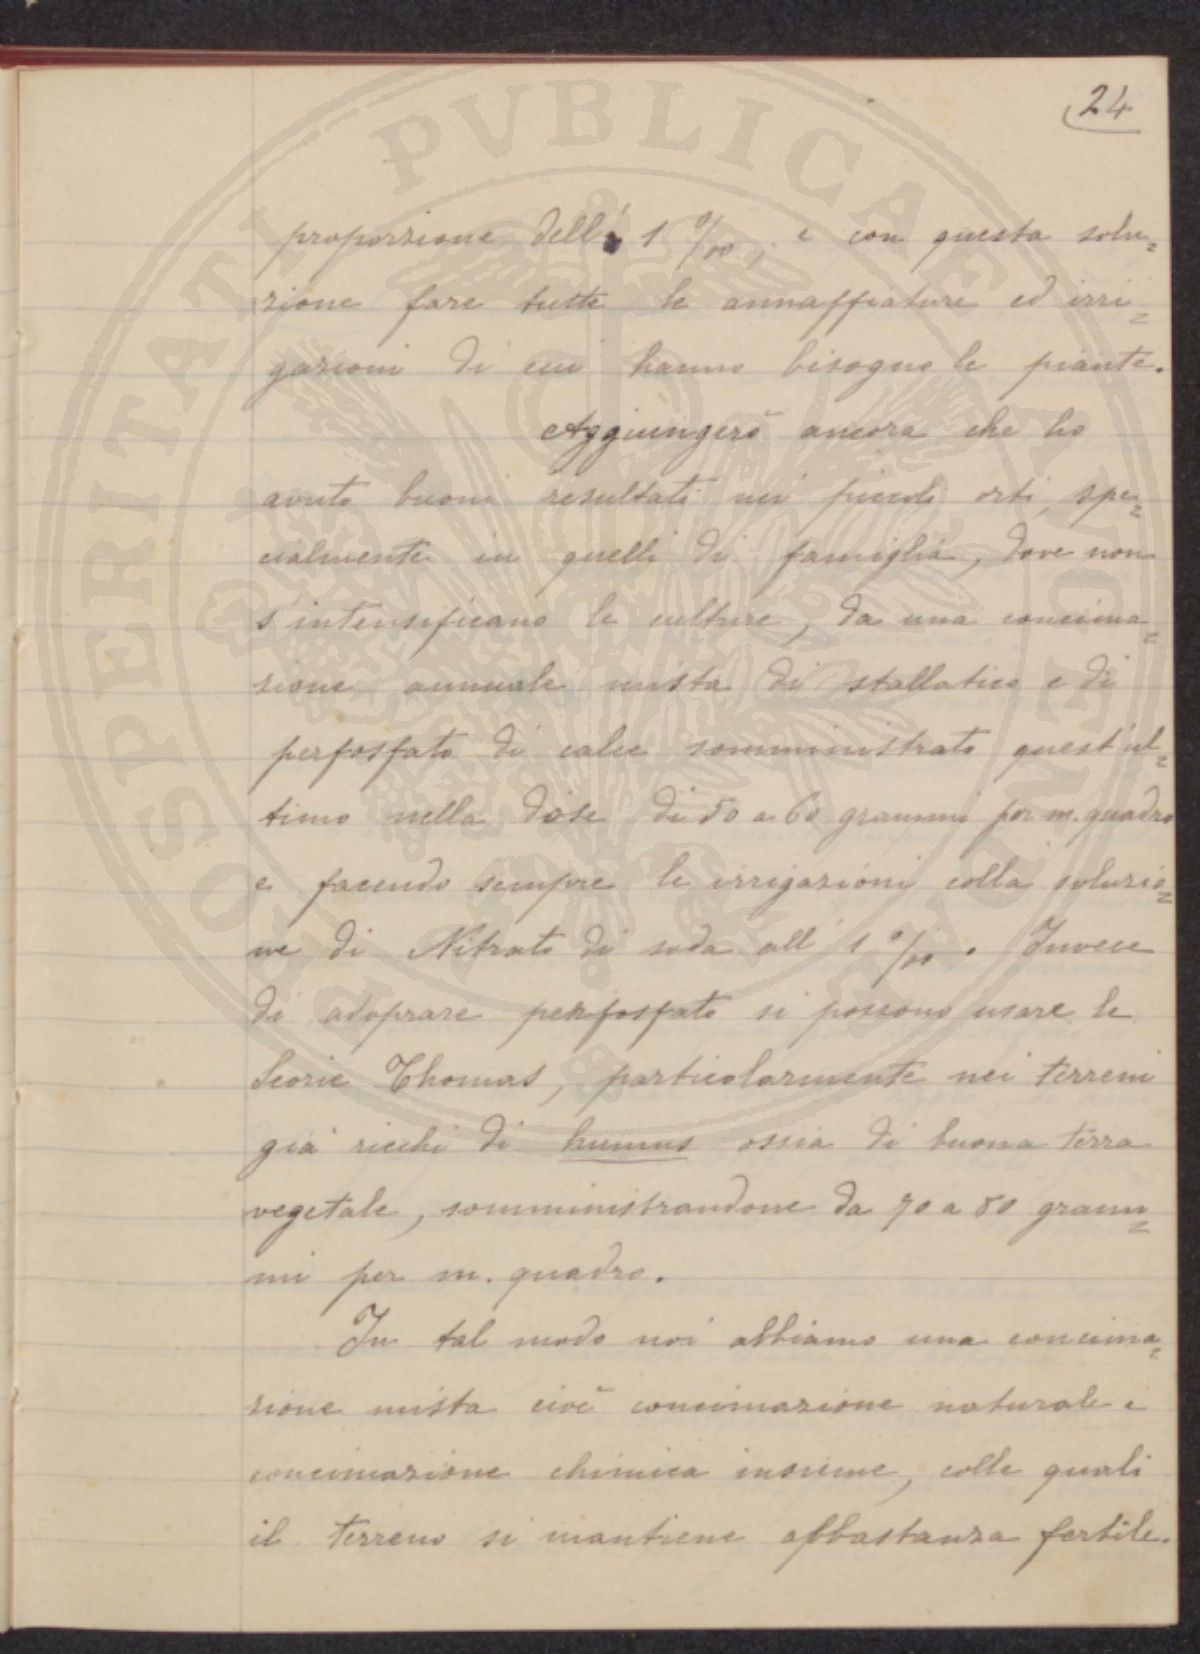 24
proporzione dell' 1 ‰, e con questa solu=
zione fare tutte le annaffiature ed irri=
gazioni di cui hanno bisogno le piante.
Aggiungerò ancora che ho
avuto buoni resultati nei piccoli orti, spe=
cialmente in quelli di famiglia, dove non
s'intensificano le culture, da una concima=
zione annuale mista di stallatico e di
perfosfato di calce somministrato quest'ul=
timo nella dose di 50 a 60 grammi per m. quadro
e facendo sempre le irrigazioni colla soluzio=
ne di Nitrato di soda all' 1 ‰. Invece
di adoprare perfosfato si possono usare le
Scorie Thomas, particolarmente nei terreni
già ricchi di humus ossia di buona terra
vegetale, somministrandone da 70 a 80 gram=
mi per m. quadro.
In tal modo noi abbiamo una concima=
zione mista cioè concimazione naturale e
concimazione chimica insieme, colle quali
il terreno si mantiene abbastanza fertile.
PROSPERITATI PVBLICAE AVGENDAE